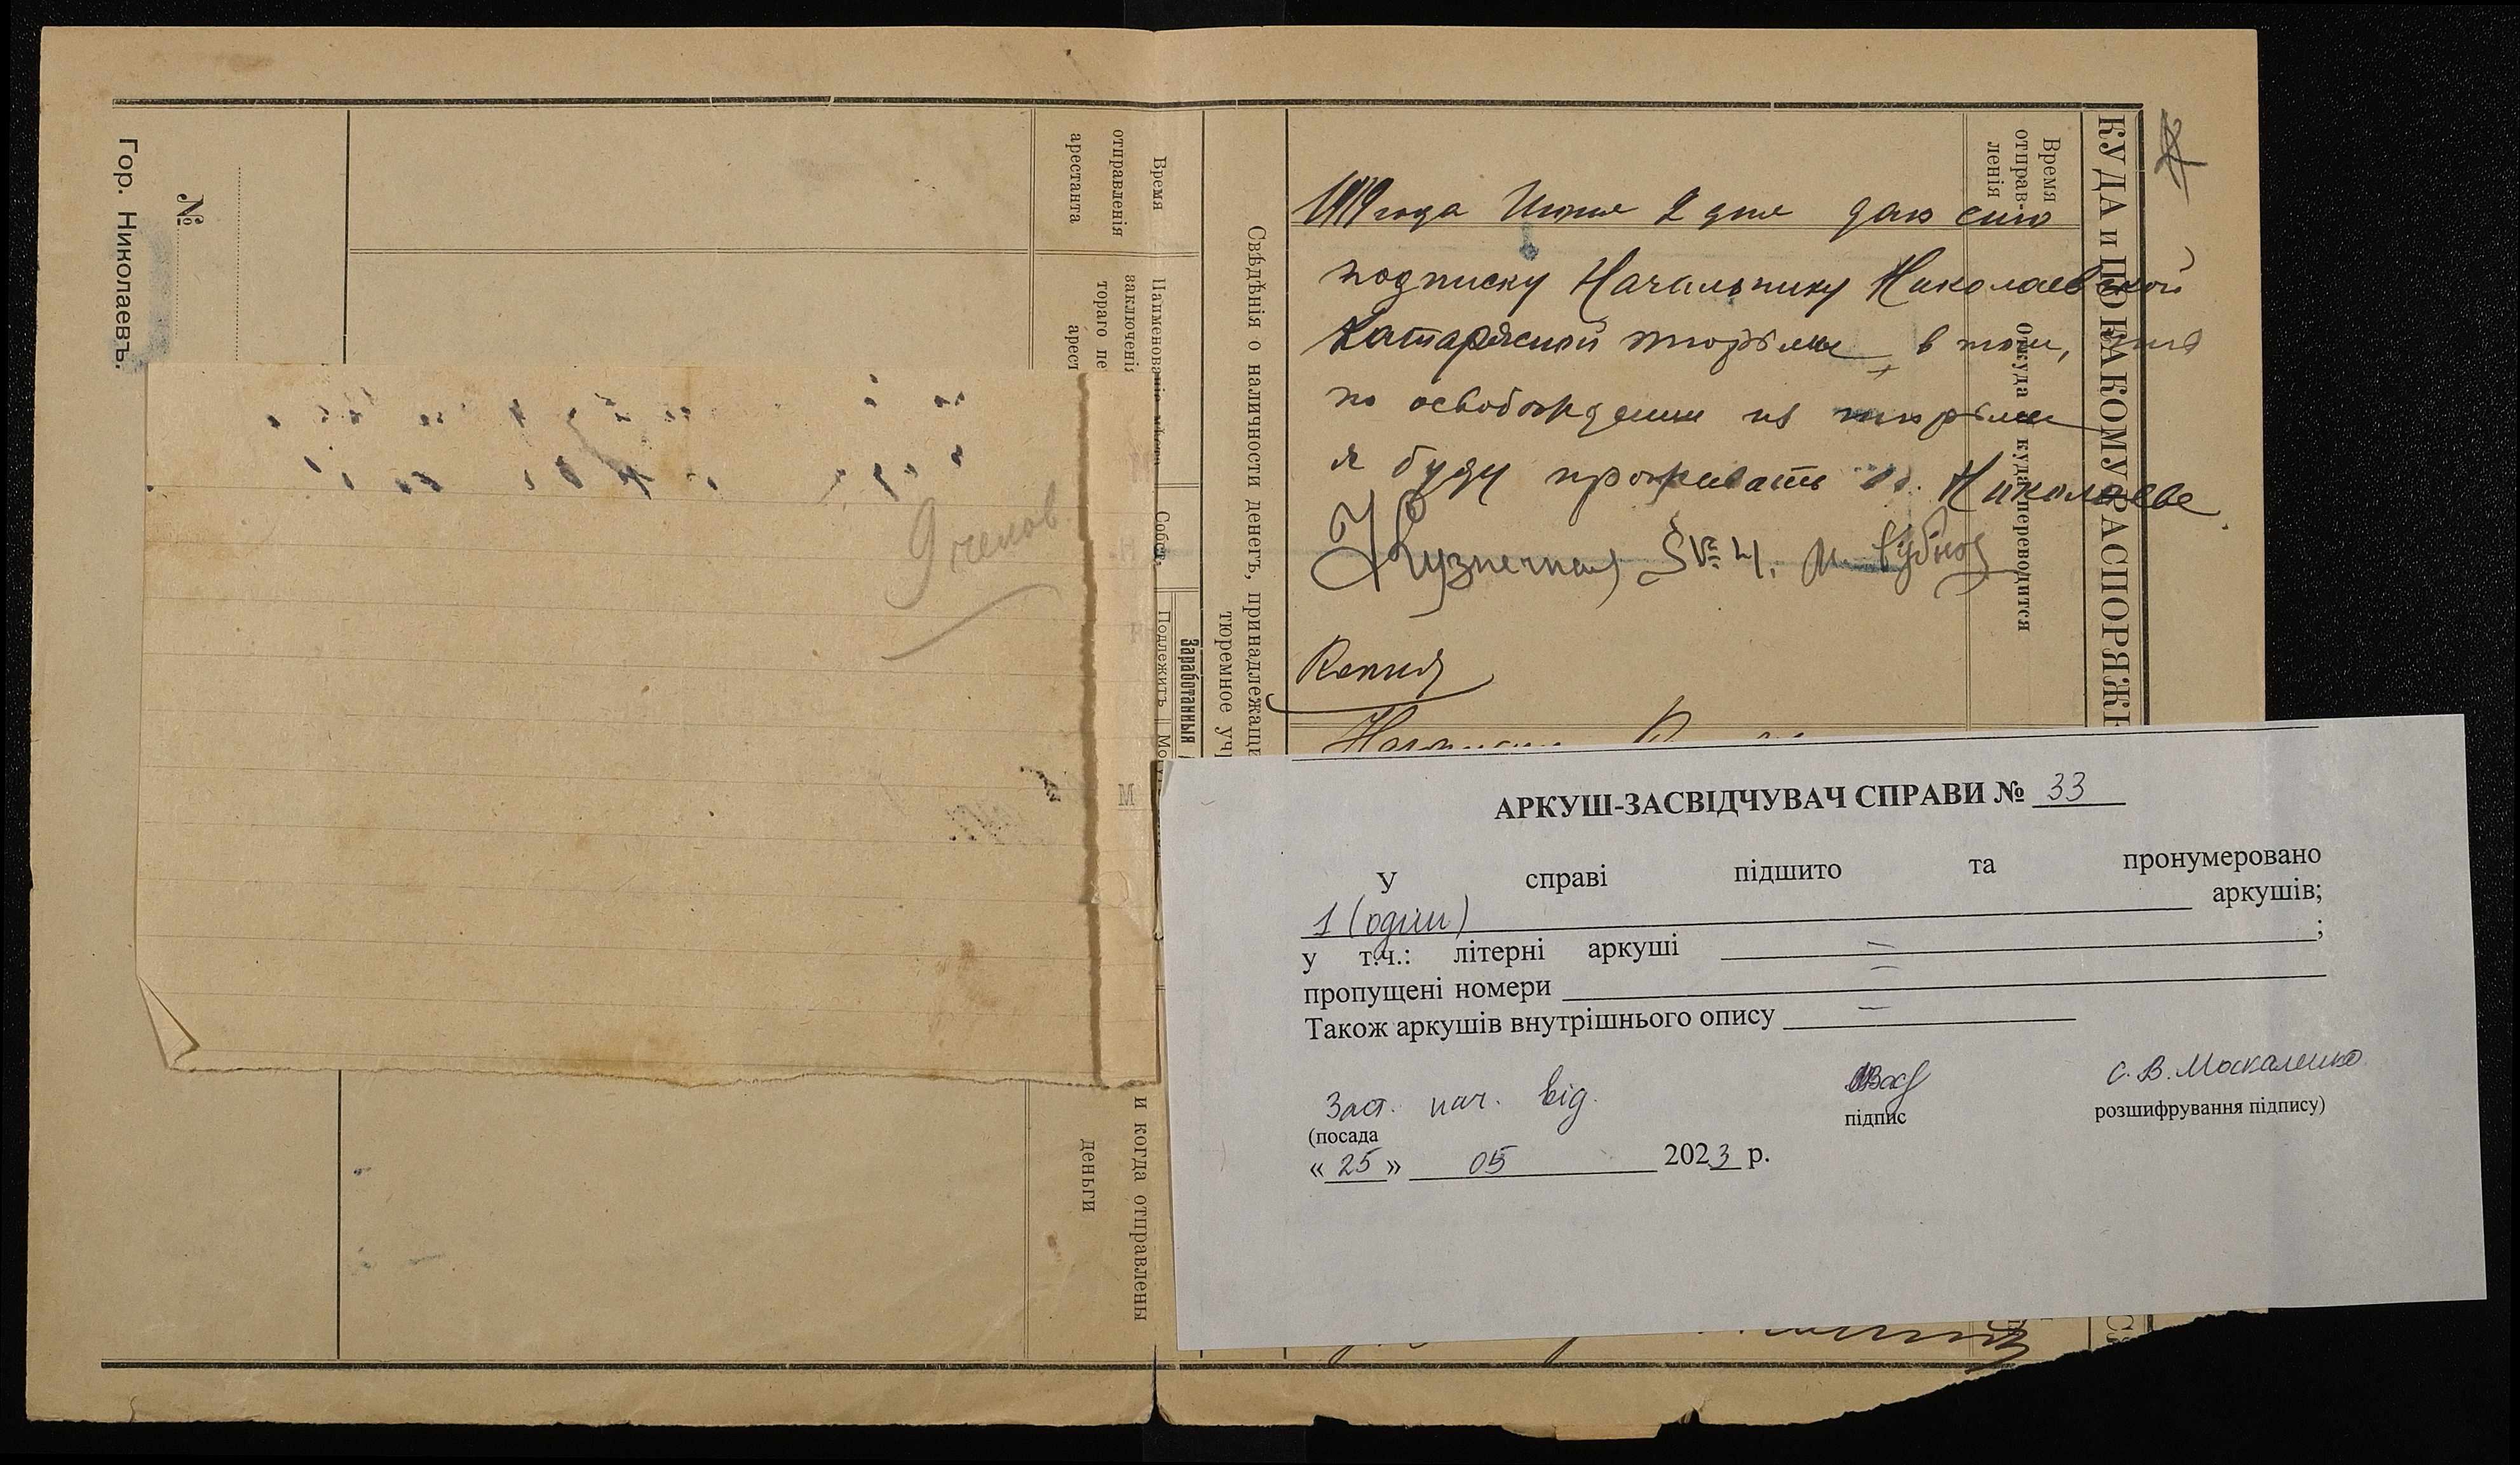 Гор. Николаевъ.
№
Время
отправленія
арестанта
Наименованіе мѣста
заключенія
тораго пе
арест
Собст.
Заработанныя
Подлежитъ
и когда отправлены
деньги
Свѣдѣнія о наличности денегъ, принадлежащи
тюремное уч
9 членов
КУДА и ПО КАКОМУ РАСПОРЯЖЕ
Время
отправ-
ленія
Откуда и куда переводится
1919 года Июня 2 дня даю сию
подписку Начальнику Николаевской
Каторжной тюрьмы в том, что
по освобождении из тюрьмы
я буду проживать в г. Николаеве
Кузнечная № 4.
Копия
АРКУШ-ЗАСВІДЧУВАЧ СПРАВИ № 33
У справі підшито та пронумеровано
1 (один) аркушів;
у т.ч.: літерні аркуші – ;
пропущені номери –
Також аркушів внутрішнього опису –
Заст. нач. від. С. В. Москаленко
(посада підпис розшифрування підпису)
« 25 » 05 2023 р.